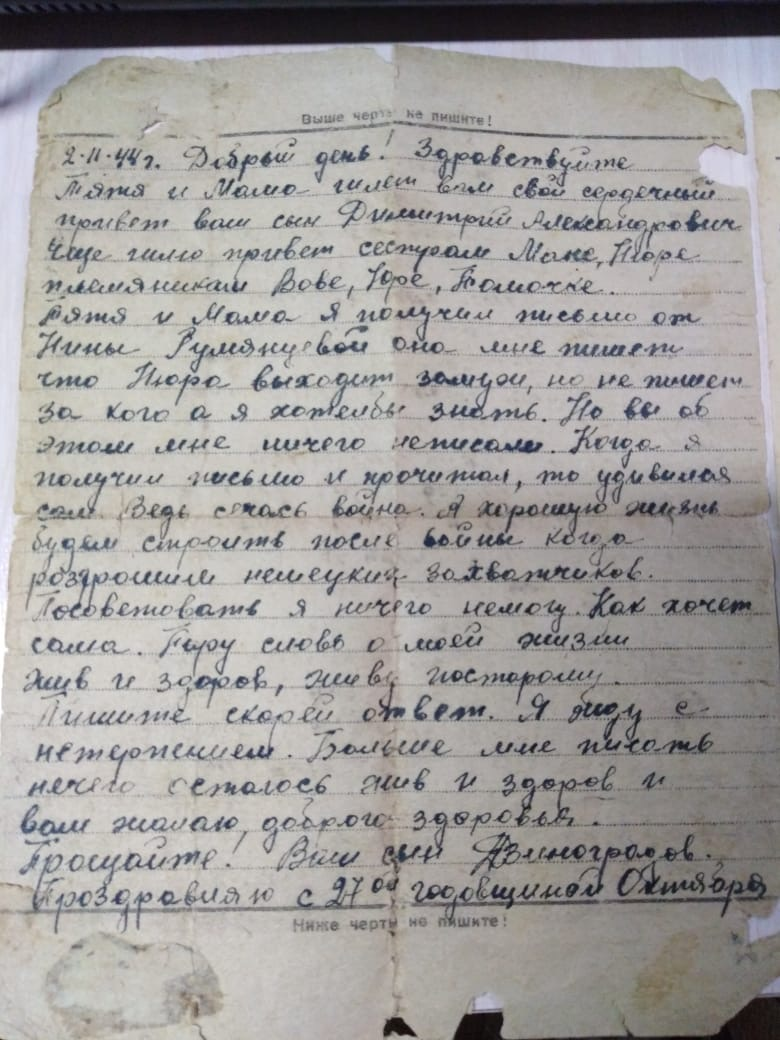 Выше черты не пишите!
2.11.44 г. Добрый день! Здравствуйте
Тятя и Мама шлет вам свой сердечный
привет ваш сын Димитрий Александрович
Еще шлю привет сестрам Мане, Нюре
племяникам Вове, Юре, Томочке.
Тятя и Мама я получил письмо от
Нины Румянцевой она мне пишет
что Нюра выходит замуж, но не пишет
за кого а я хотелбы знать. Но вы об
этом мне ничего неписали. Когда я
получил письмо и прочитал, то удивился
сам. Ведь счас война. А хорошую жизнь
будем строить после войны когда
розгромим немецких захватчиков.
Посоветовать я ничего немогу. Как хочет
сама. Пару слов о моей жизни
жив и здоров, живу постарому.
Пишите скорей ответ. Я жду с
нетерпением. Больше мне писать
нечего осталось жив и здоров и
вам жалаю доброго здоровья.
Прощайте! Ваш сын
Проздравляю с 27ой годовщиной Октября
Ниже черты не пишите!